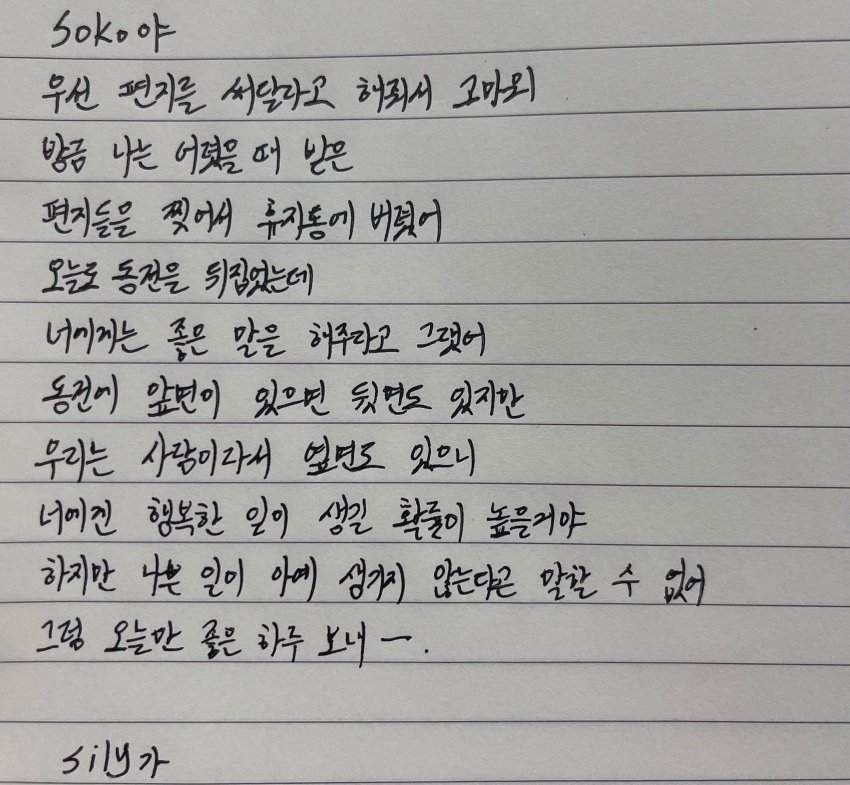 soko야
우선 편지를 써달라고 해줘서 고마워
방금 나는 어렸을 때 받은
편지들을 찢어서 휴지통에 버렸어
오늘도 동전을 뒤집었는데
너에게는 좋은 말을 해주라고 그랬어
동전에 앞면이 있으면 뒷면도 있지만
우리는 사람이라서 옆면도 있으니
너에겐 행복한 일이 생길 확률이 높을거야
하지만 나쁜 일이 아예 생기지 않는다곤 말할 수 없어
그럼 오늘만 좋은 하루 보내 ㅡ.
sily가